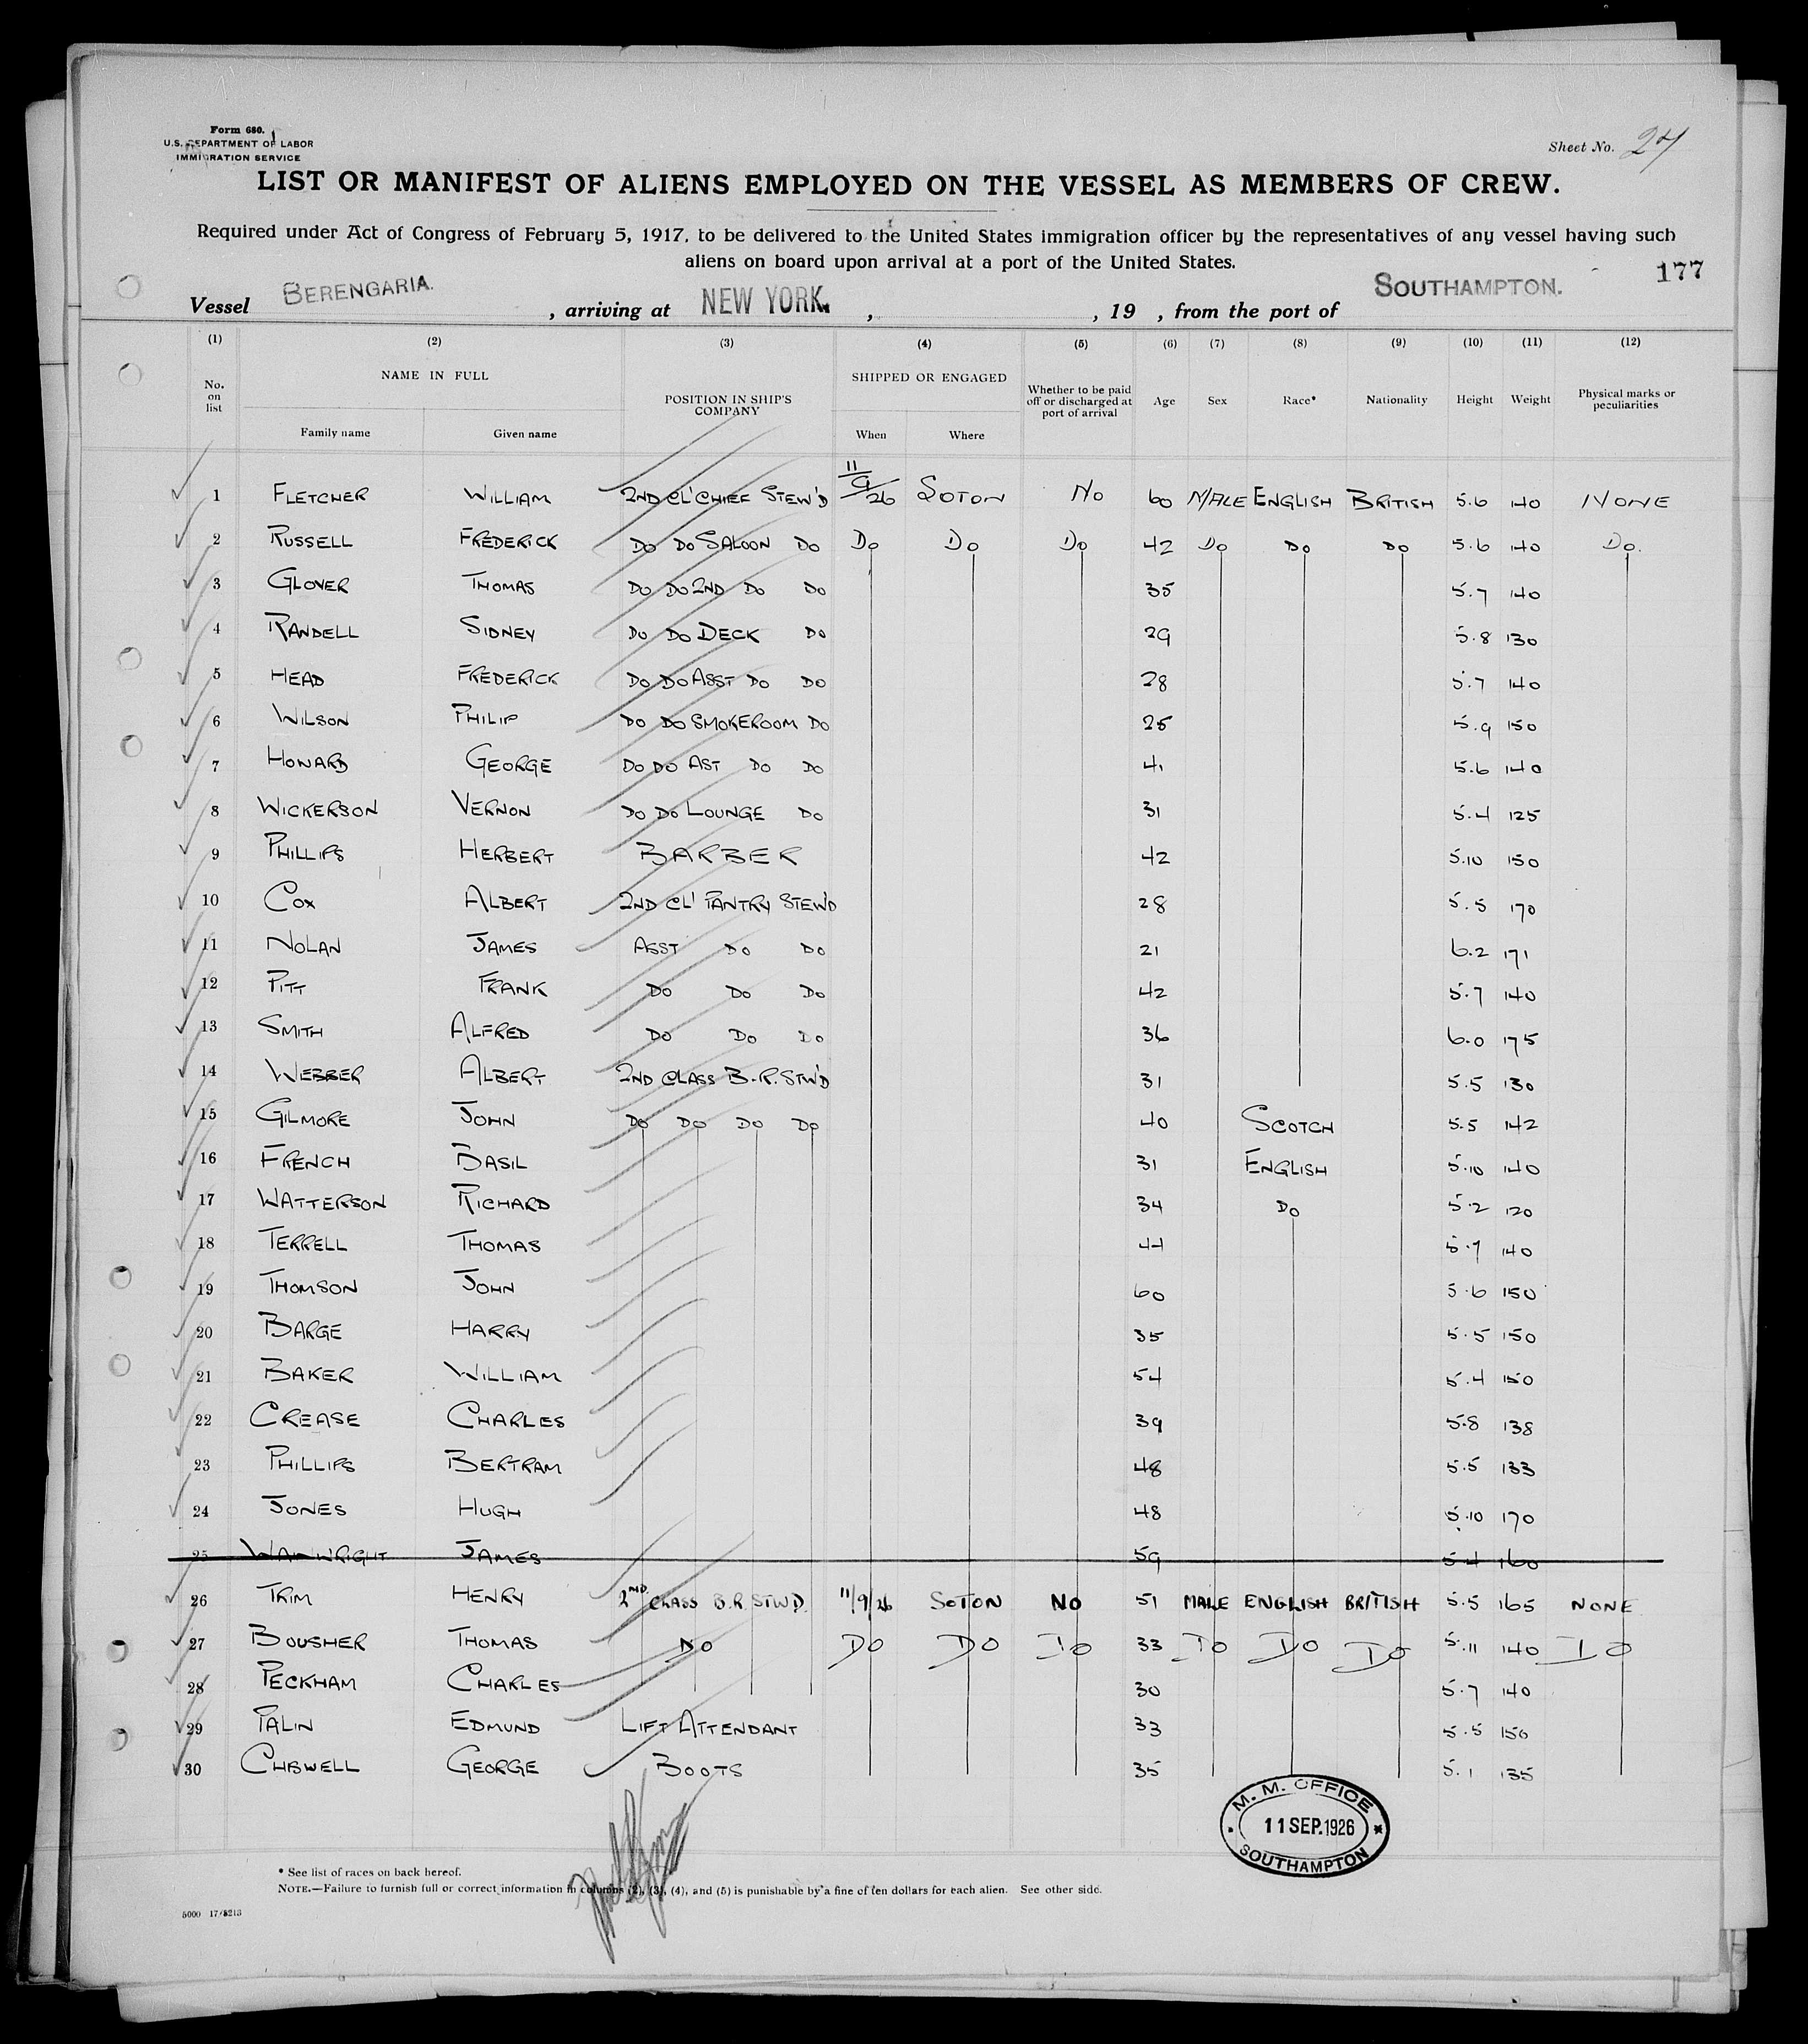 Form 680.
U.S. DEPARTMENT OF LABOR
IMMIGRATION SERVICE
Sheet No. 27
LIST OR MANIFEST OF ALIENS EMPLOYED ON THE VESSEL AS MEMBERS OF CREW.
Required under Act of Congress of February 5, 1917, to be delivered to the United States immigration officer by the representatives of any vessel having such
aliens on board upon arrival at a port of the United States.
177
Vessel BERENGARIA. , arriving at NEW YORK. , , 19 , from the port of SOUTHAMPTON.
(1) (2) (3) (4) (5) (6) (7) (8) (9) (10) (11) (12)
No. on list NAME IN FULL Family name Given name POSITION IN SHIP'S COMPANY SHIPPED OR ENGAGED When Where Whether to be paid off or discharged at port of arrival Age Sex Race* Nationality Height Weight Physical marks or peculiarities
1 FLETCHER WILLIAM 2ND CL' CHIEF STEW'D 11/9/26 SOTON NO 60 MALE ENGLISH BRITISH 5.6 140 NONE
2 RUSSELL FREDERICK DO DO SALOON DO DO DO DO 42 DO DO DO 5.6 140 DO.
3 GLOVER THOMAS DO DO 2ND DO DO 35 5.7 140
4 RANDELL SIDNEY DO DO DECK DO 29 5.8 130
5 HEAD FREDERICK DO DO ASST DO DO 28 5.7 140
6 WILSON PHILIP DO DO SMOKEROOM DO 25 5.9 150
7 HOWARD GEORGE DO DO AST DO DO 41 5.6 140
8 WICKERSON VERNON DO DO LOUNGE DO 31 5.4 125
9 PHILLIPS HERBERT BARBER 42 5.10 150
10 COX ALBERT 2ND CL' PANTRY STEW'D 28 5.5 170
11 NOLAN JAMES ASST DO DO 21 6.2 171
12 PITT FRANK DO DO DO 42 5.7 140
13 SMITH ALFRED DO DO DO 36 6.0 175
14 WEBBER ALBERT 2ND CLASS B.R. STW'D 31 5.5 130
15 GILMORE JOHN DO DO DO DO 40 SCOTCH 5.5 142
16 FRENCH BASIL 31 ENGLISH 5.10 140
17 WATTERSON RICHARD 34 DO 5.2 120
18 TERRELL THOMAS 44 5.7 140
19 THOMSON JOHN 60 5.6 150
20 BARGE HARRY 35 5.5 150
21 BAKER WILLIAM 54 5.4 150
22 CREASE CHARLES 39 5.8 138
23 PHILLIPS BERTRAM 48 5.5 133
24 JONES HUGH 48 5.10 170
25 WAINWRIGHT JAMES 59 5.4 160
26 TRIM HENRY 2ND CLASS B.R. STW'D. 11/9/26 SOTON NO 51 MALE ENGLISH BRITISH 5.5 165 NONE
27 BOUSHER THOMAS DO DO DO DO 33 DO DO DO 5.11 140 DO
28 PECKHAM CHARLES 30 5.7 140
29 PALIN EDMUND LIFT ATTENDANT 33 5.5 150
30 CHISWELL GEORGE BOOTS 35 5.1 135
M. M. OFFICE
11 SEP. 1926
SOUTHAMPTON
* See list of races on back hereof.
NOTE.—Failure to furnish full or correct information in columns (2), (3), (4), and (5) is punishable by a fine of ten dollars for each alien. See other side.
5000 17/8213